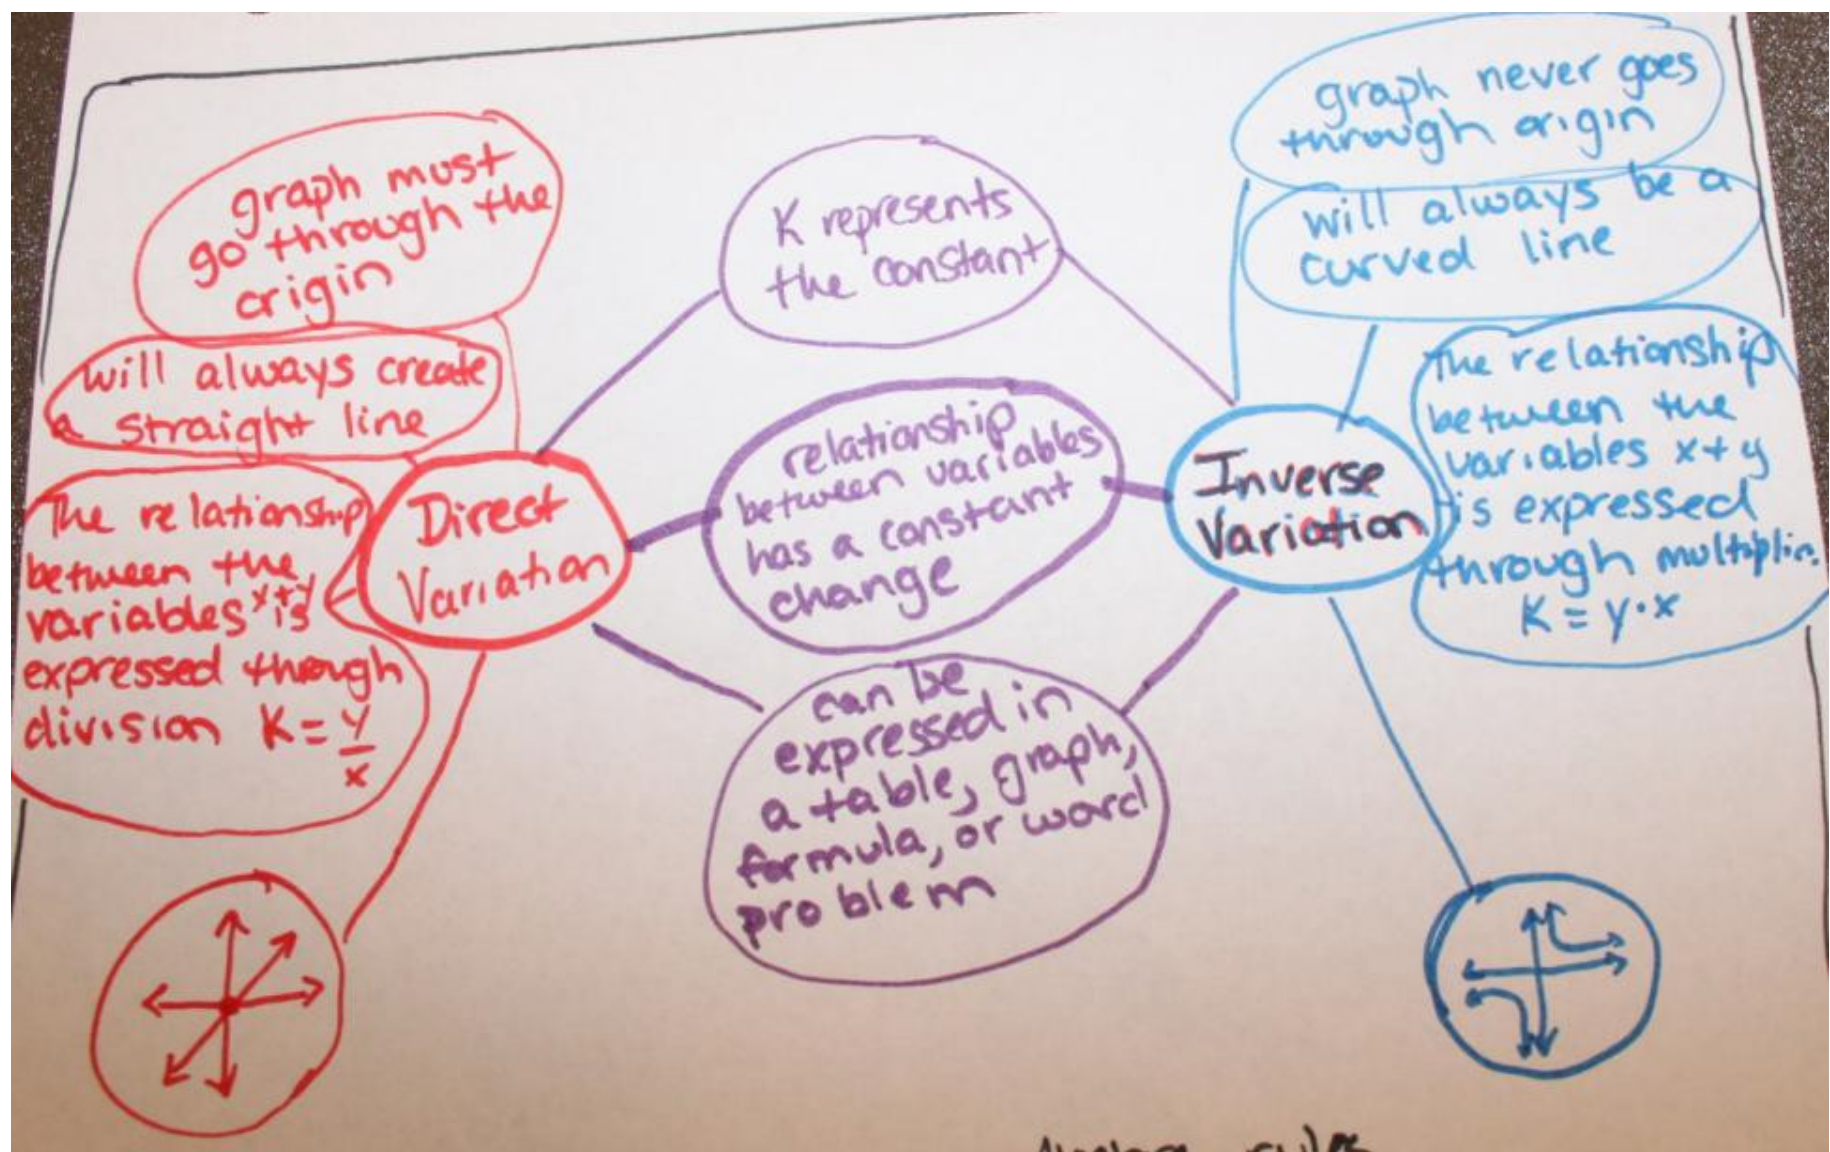 graph must
go through the
origin
will always create
a straight line
The relationship
between the
variables x+y is
expressed through
division K = y/x
Direct
Variation
K represents
the constant
relationship
between variables
has a constant
change
can be
expressed in
a table, graph,
formula, or word
problem
graph never goes
through origin
will always be a
curved line
The relationship
between the
variables x+y
is expressed
through multiplic.
K = y·x
Inverse
Variation
rules